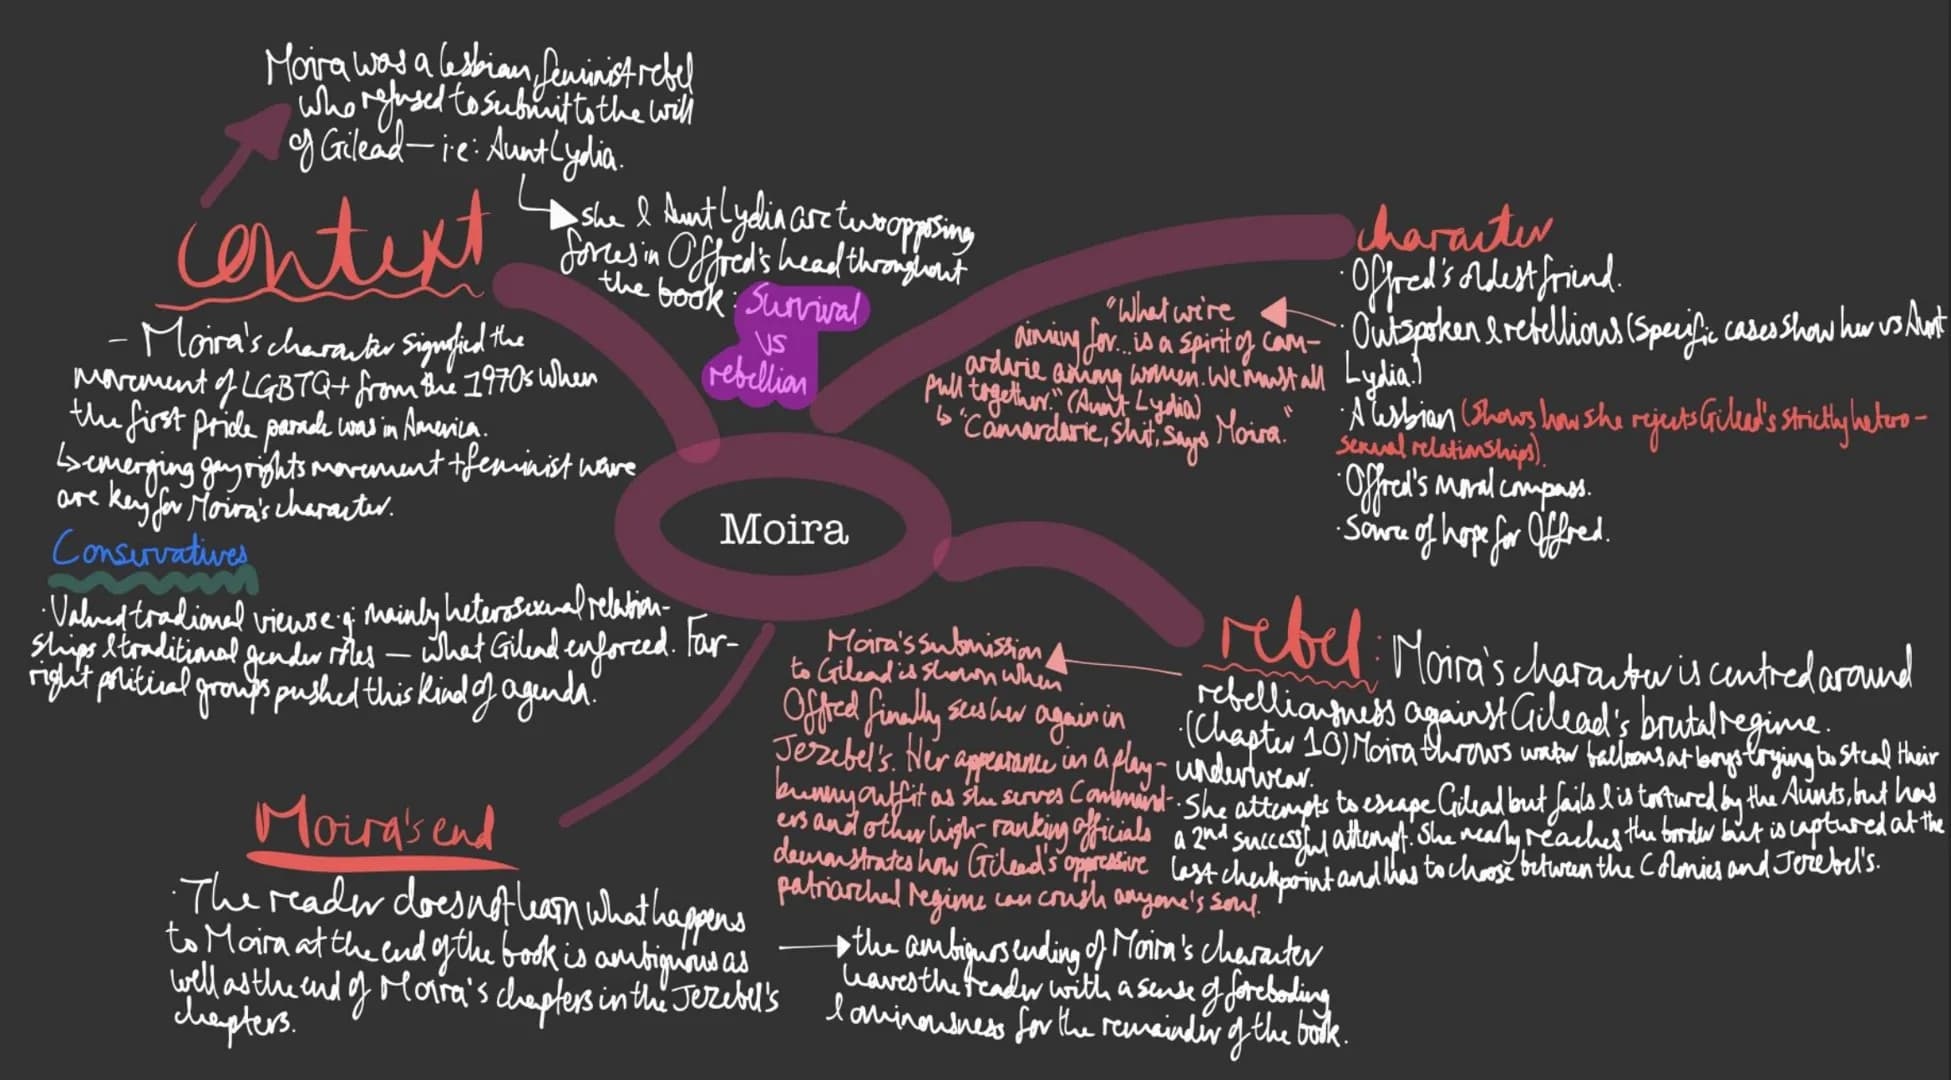 Moira was a lesbian, feminist rebel
who refused to submit to the will
of Gilead — i.e: Aunt Lydia.
she & Aunt Lydia are two opposing
forces in Offred's head throughout
the book:
Survival
vs
rebellion
Context
- Moira's character signified the
movement of LGBTQ+ from the 1970s when
the first pride parade was in America.
↳ emerging gay rights movement + feminist wave
are key for Moira's character.
Conservatives
· Valued tradional views e.g. mainly heterosexual relation-
ships & traditional gender roles — what Gilead enforced. Far-
right political groups pushed this kind of agenda.
Moira
character
· Offred's oldest friend.
· Outspoken & rebellious (specific cases show her vs Aunt
Lydia.)
· A lesbian (shows how she rejects Gilead's strictly hetero-
sexual relationships).
· Offred's moral compass.
· Source of hope for Offred.
"What we're
aiming for... is a spirit of cam-
ardarie among women. We must all
pull together." (Aunt Lydia)
↳ "Camardarie, shit, says Moira."
rebel: Moira's character is centred around
rebelliousness against Gilead's brutal regime.
· (Chapter 10) Moira throws water balloons at boys trying to steal their
underwear.
· She attempts to escape Gilead but fails & is tortured by the Aunts, but has
a 2nd successful attempt. She nearly reaches the border but is captured at the
last checkpoint and has to choose between the Colonies and Jezebel's.
Moira's submission
to Gilead is shown when
Offred finally sees her again in
Jezebel's. Her appearance in a play-
bunny outfit as she serves Command-
ers and other high-ranking officials
demonstrates how Gilead's oppressive
patriarchal regime can crush anyone's soul.
Moira's end
· The reader does not learn what happens
to Moira at the end of the book is ambiguous as
well as the end of Moira's chapters in the Jezebel's
chapters.
the ambiguos ending of Moira's character
leaves the reader with a sense of foreboding
& ominousness for the remainder of the book.